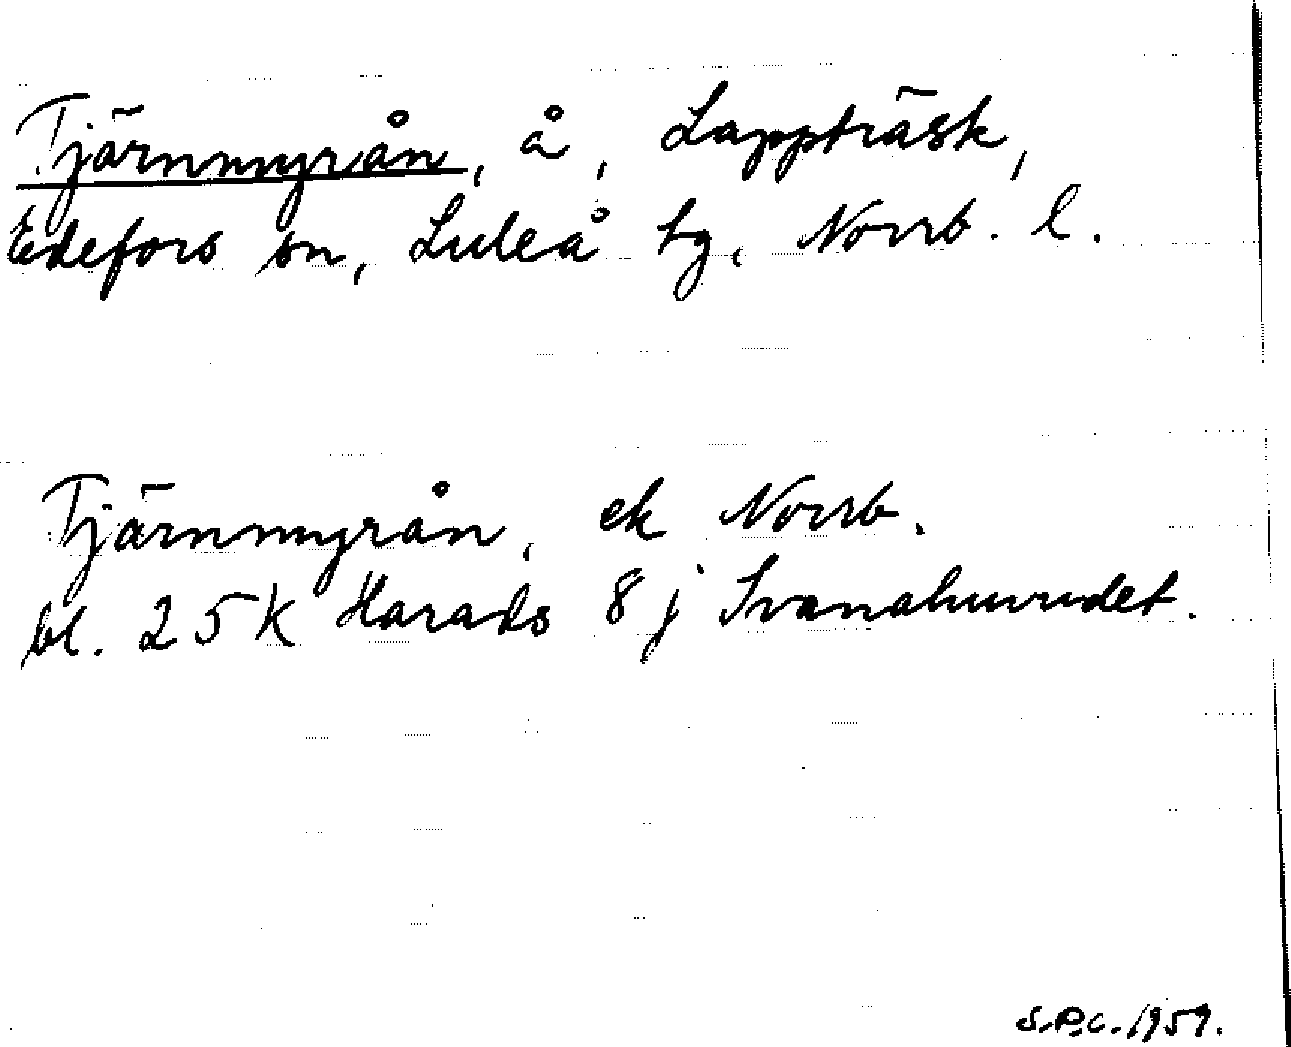 Tjärnmyrån, å, Lappträsk,
Edefors sn, Luleå tg, Norrb. l.
Tjärnmyrån, ek Norrb.
bl. 25K Harads 8 j Svanahuvudet.
S.P.C. 1959.